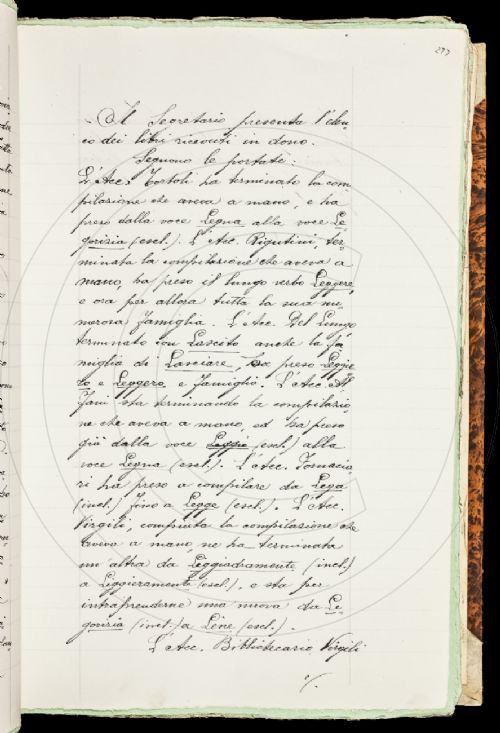 293
Il Secretario presenta l'elen-
co dei libri ricevuti in dono.
Seguono le portate:
L'Acc. Tortoli ha terminato la com-
pilazione che aveva a mano, e ha
preso dalla voce Legna alla voce Le-
gorizia (escl.). L'Acc. Rigutini, ter-
minata la compilazione che aveva a
mano, ha preso il lungo verbo Leggere,
e ora per allora tutta la sua nu-
merosa famiglia. L'Acc. Del Lungo
terminato con Lascito anche la fa-
miglia di Lasciare, ha preso Leggie-
ro e Leggero, e famiglia. L'Acc. Al-
fani sta terminando la compilazio-
ne che aveva a mano, ed ha preso
giù dalla voce Leggio (escl.) alla
voce Legna (escl.). L'Acc. Tomacia-
ri ha preso a compilare da Lega
(incl.) fino a Legge (escl.). L'Acc.
Virgili, compiuta la compilazione che
aveva a mano, ne ha terminata
un' altra da Leggiadramente (incl.)
a Leggieramente (escl.), e sta per
intraprenderne una nuova da Le-
gorizia (incl.) a Lene (escl.).
L'Acc. Bibliotecario Virgili